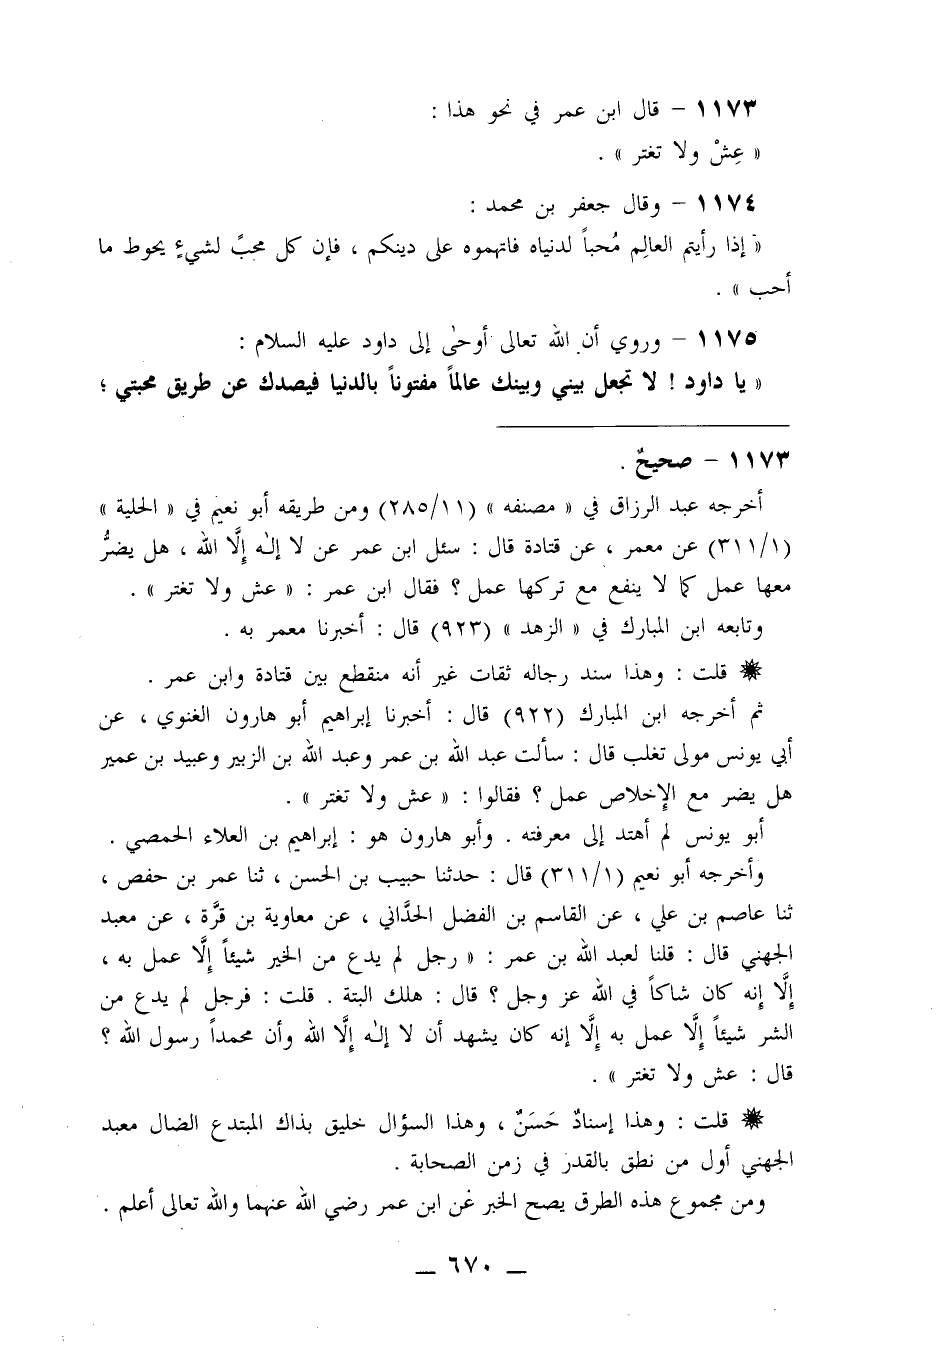 ١١٧٣ – قال ابن عمر في نحو هذا :
« عِشْ ولا تغتر » .
١١٧٤ – وقال جعفر بن محمد :
« إذا رأيتم العالِم مُحباً لدنياه فاتهموه على دينكم ، فإن كل محبً لشيءٍ يحوط ما
أحب » .
١١٧٥ – وروي أن الله تعالى أوحىٰ إلى داود عليه السلام :
« يا داود ! لا تجعل بيني وبينك عالماً مفتوناً بالدنيا فيصدك عن طريق محبتي ؛
١١٧٣ – صحيحٌ .
أخرجه عبد الرزاق في « مصنفه » (٢٨٥/١١) ومن طريقه أبو نعيم في « الحلية »
(٣١١/١) عن معمر ، عن قتادة قال : سئل ابن عمر عن لا إلٰه إِلَّا الله ، هل يضرُّ
معها عمل كما لا ينفع مع تركها عمل ؟ فقال ابن عمر : « عش ولا تغتر » .
وتابعه ابن المبارك في « الزهد » (٩٢٣) قال : أخبرنا معمر به .
✸ قلت : وهذا سند رجاله ثقات غير أنه منقطع بين قتادة وابن عمر .
ثم أخرجه ابن المبارك (٩٢٢) قال : أخبرنا إبراهيم أبو هارون الغنوي ، عن
أبي يونس مولى تغلب قال : سألت عبد الله بن عمر وعبد الله بن الزبير وعبيد بن عمير
هل يضر مع الإخلاص عمل ؟ فقالوا : « عش ولا تغتر » .
أبو يونس لم أهتد إلى معرفته . وأبو هارون هو : إبراهيم بن العلاء الحمصي .
وأخرجه أبو نعيم (٣١١/١) قال : حدثنا حبيب بن الحسن ، ثنا عمر بن حفص ،
ثنا عاصم بن علي ، عن القاسم بن الفضل الحدَّاني ، عن معاوية بن قرَّة ، عن معبد
الجهني قال : قلنا لعبد الله بن عمر : « رجل لم يدع من الخير شيئاً إِلَّا عمل به ،
إِلَّا إنه كان شاكاً في الله عز وجل ؟ قال : هلك البتة . قلت : فرجل لم يدع من
الشر شيئاً إِلَّا عمل به إِلَّا إنه كان يشهد أن لا إلٰه إِلَّا الله وأن محمداً رسول الله ؟
قال : عش ولا تغتر » .
✸ قلت : وهذا إسنادٌ حَسَنٌ ، وهذا السؤال خليق بذاك المبتدع الضال معبد
الجهني أول من نطق بالقدر في زمن الصحابة .
ومن مجموع هذه الطرق يصح الخبر عن ابن عمر رضي الله عنهما والله تعالى أعلم .
— ٦٧٠ —